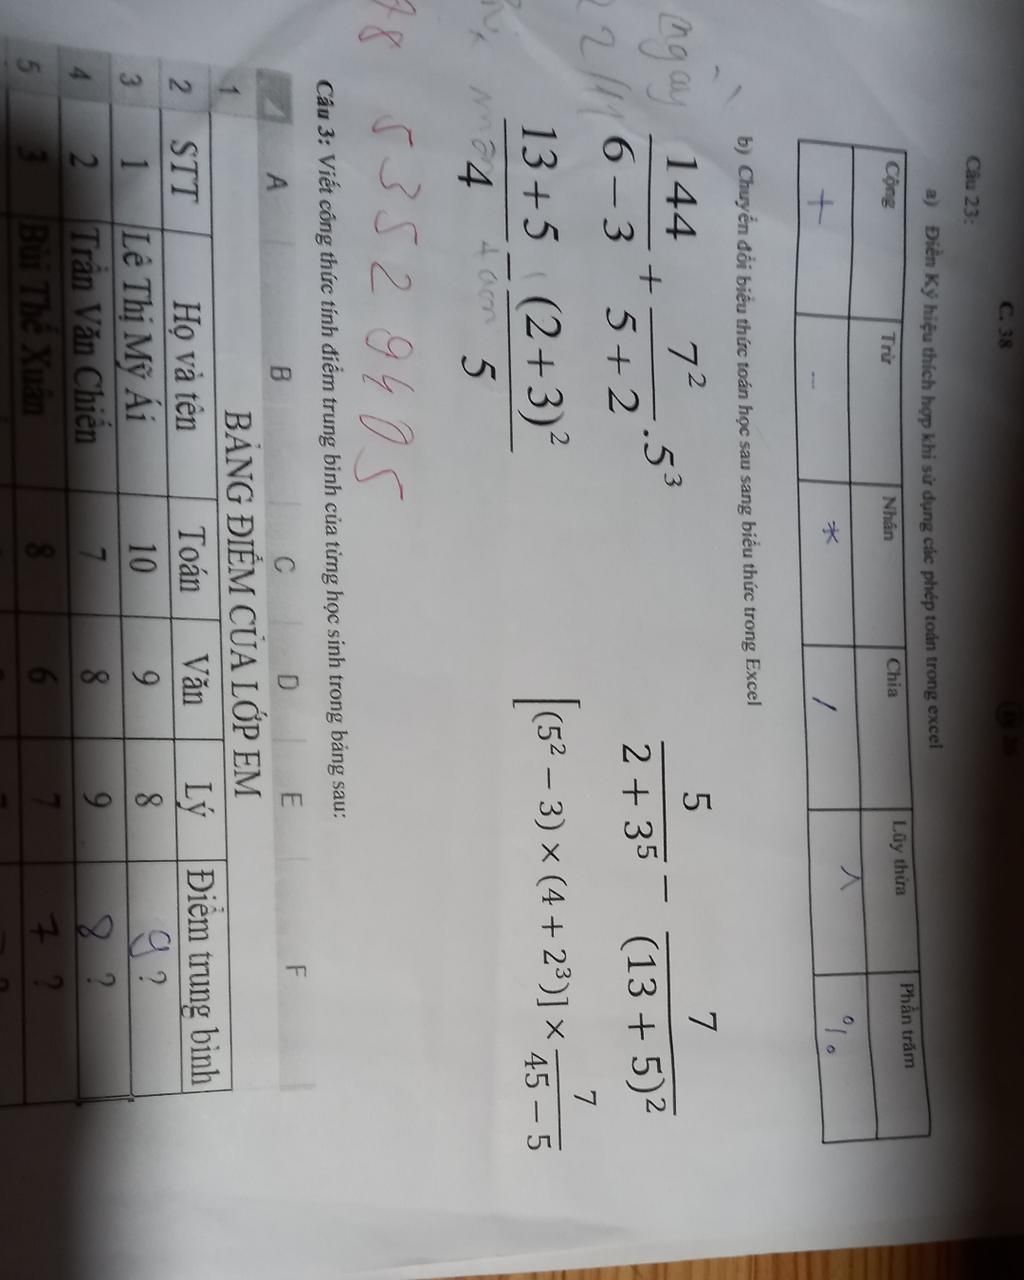 C. 38 D. 26
Câu 23:
a) Điền Ký hiệu thích hợp khi sử dụng các phép toán trong excel
Cộng Trừ Nhân Chia Lũy thừa Phần trăm
+ - * / ^ %
b) Chuyển đổi biểu thức toán học sau sang biểu thức trong Excel
144/(6 − 3) + 7²/(5 + 2) . 5³
5/(2 + 3⁵) − 7/(13 + 5)²
(13 + 5)/4 − (2 + 3)²/5
[(5² − 3) × (4 + 2³)] × 7/(45 − 5)
ngày
2/11
năm
98 5352 9405
Câu 3: Viết công thức tính điểm trung bình của từng học sinh trong bảng sau:
A B C D E F
1 BẢNG ĐIỂM CỦA LỚP EM
2 STT Họ và tên Toán Văn Lý Điểm trung bình
3 1 Lê Thị Mỹ Ái 10 9 8 9 ?
4 2 Trần Văn Chiến 7 8 9 8 ?
5 3 Bùi Thế Xuân 8 6 7 7 ?